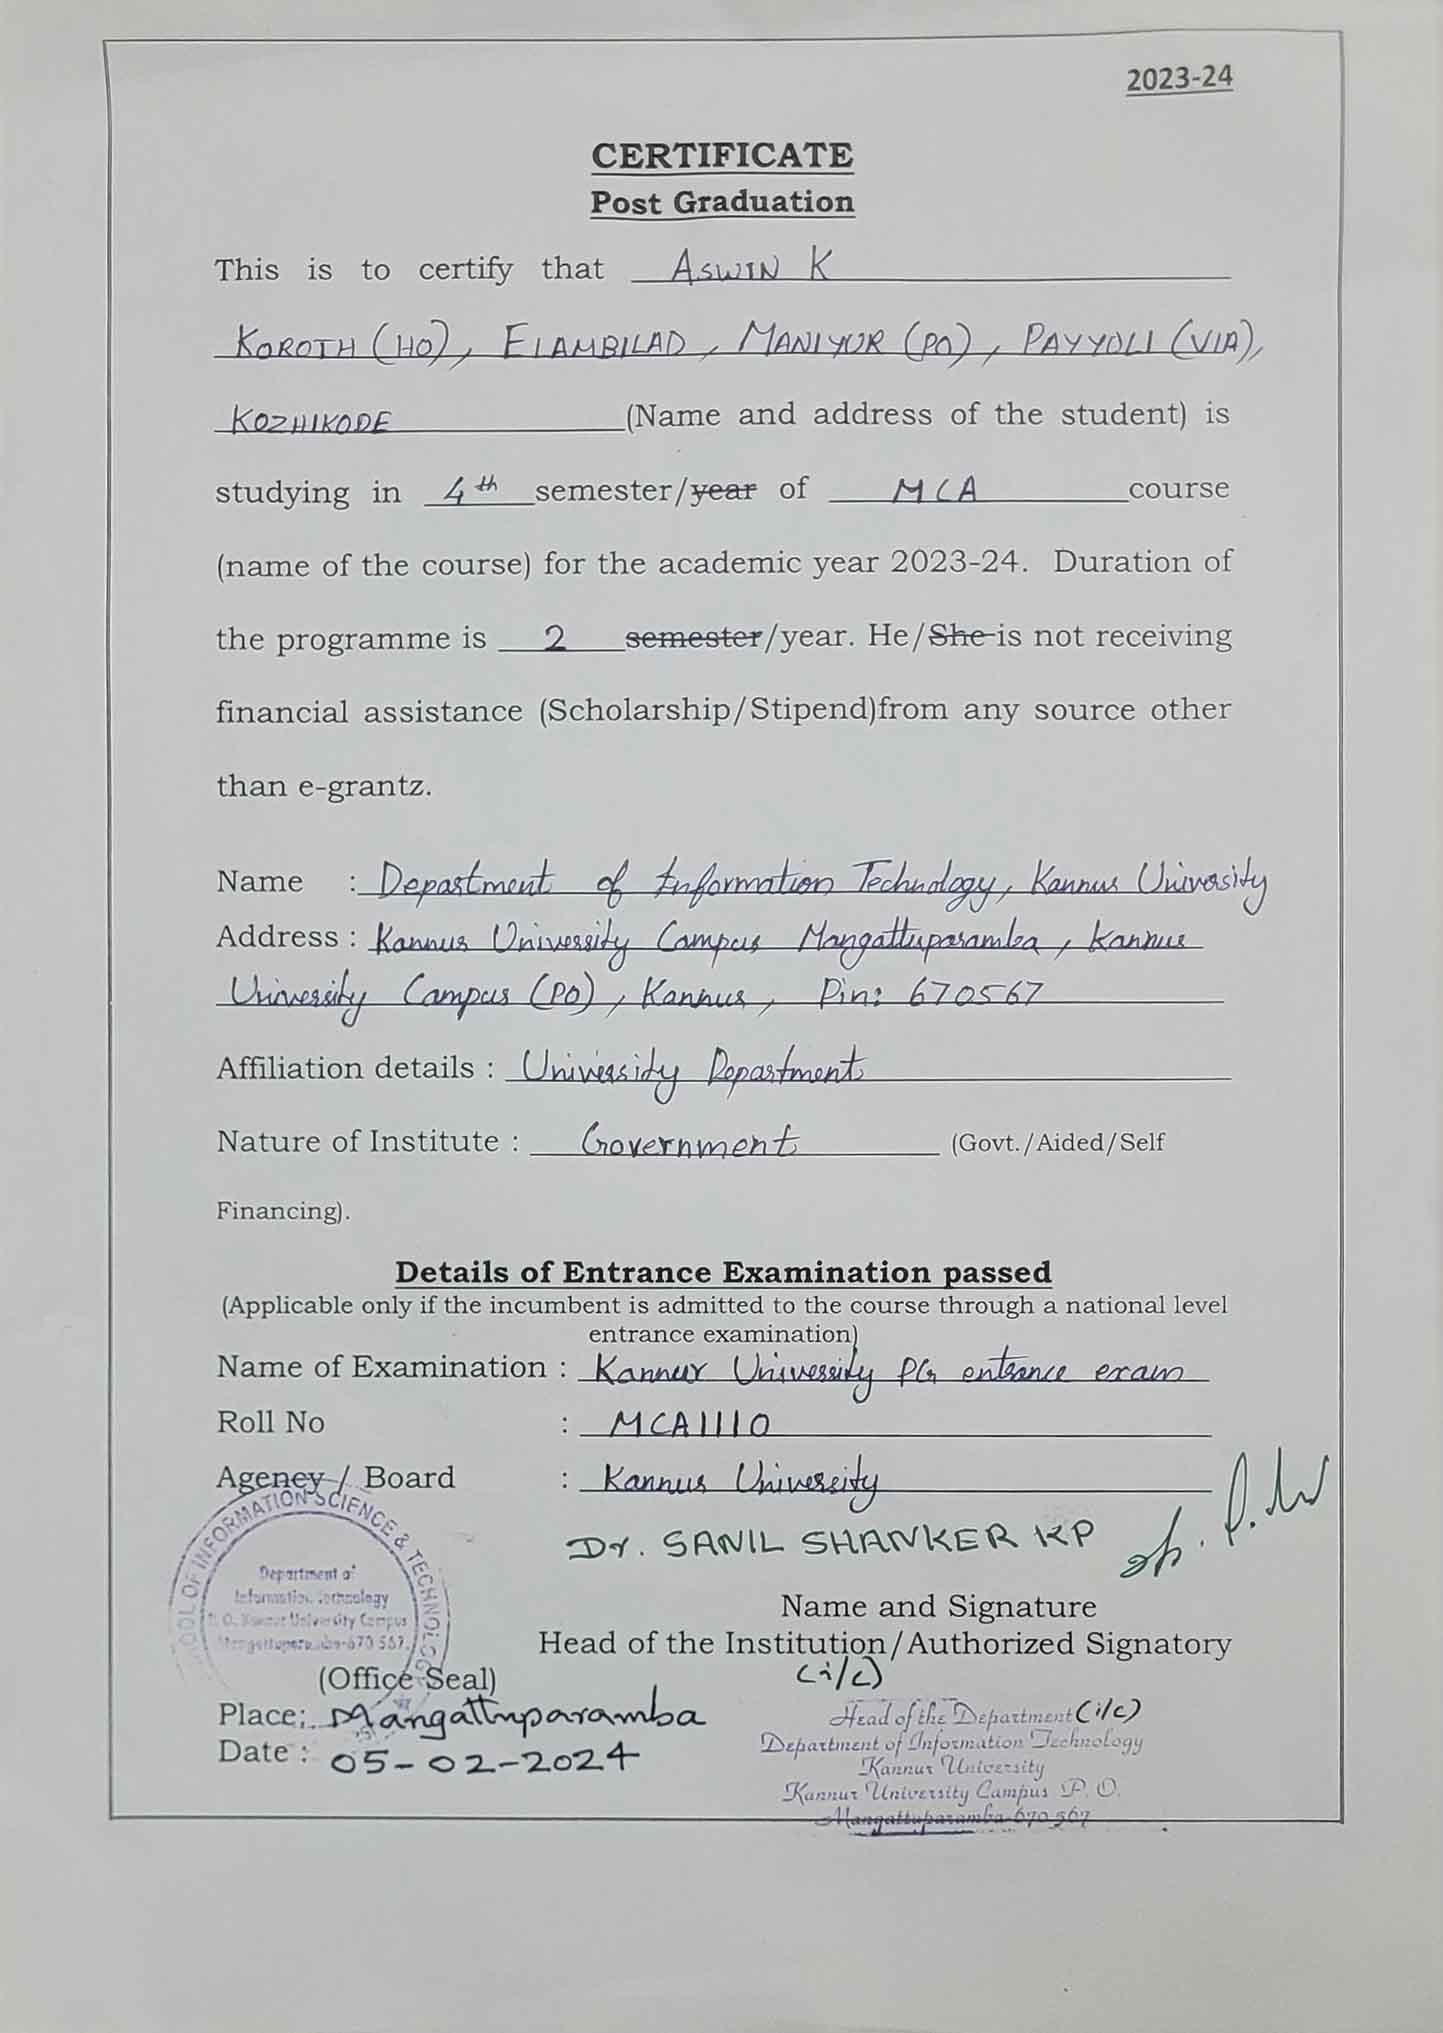 2023-24
CERTIFICATE
Post Graduation
This is to certify that ASWIN K
KOROTH (HO), ELAMBILAD, MANIYUR (PO), PAYYOLI (VIA),
KOZHIKODE (Name and address of the student) is
studying in 4th semester/year of MCA course
(name of the course) for the academic year 2023-24. Duration of
the programme is 2 semester/year. He/She is not receiving
financial assistance (Scholarship/Stipend)from any source other
than e-grantz.
Name : Department of Information Technology, Kannur University
Address : Kannur University Campus Mangattuparamba, Kannur
University Campus (PO), Kannur, Pin: 670567
Affiliation details : University Department
Nature of Institute : Government (Govt./Aided/Self
Financing).
Details of Entrance Examination passed
(Applicable only if the incumbent is admitted to the course through a national level
entrance examination)
Name of Examination : Kannur University PG entrance exam
Roll No : MCA1110
Agency / Board : Kannur University
OF INFORMATION SCIENCE & TECHNOLOG
Department of
Information Technology
P. O. Kannur University Campus
Mangattuparamba-670 567.
Dr. SANIL SHANKER KP
Name and Signature
Head of the Institution/Authorized Signatory
(i/c)
(Office Seal)
Place: Mangattuparamba
Date : 05-02-2024
Head of the Department (i/c)
Department of Information Technology
Kannur University
Kannur University Campus P. O.
Mangattuparamba-670 567